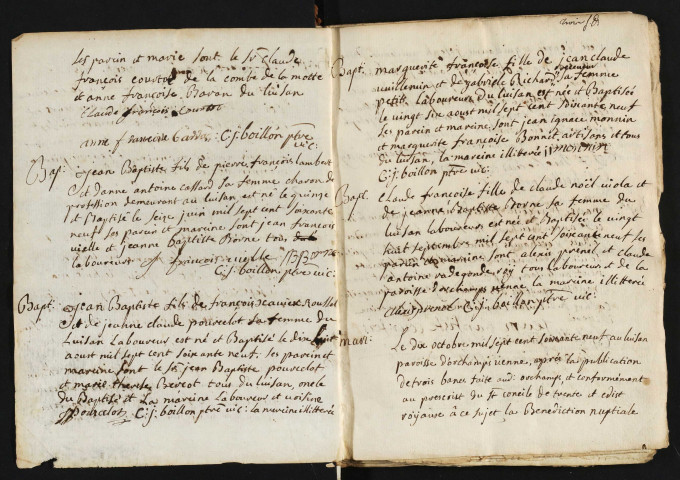 les parin et marie sont le Sr Claude
françois coustot de la combe de la motte
et anne françoise Baron du luisan
Claude françois
anne francoise C: j: boillon ptre
vic:
Bap: Jean Baptiste fils de pierre françois lambert
et danne antoine cassard sa femme charon de
profession demeurant au luisan, est né le quinze
et Baptisé le seize juin mil sept cent soixante
neuf ses parin et marine sont jean françois
vielle et jeanne Baptiste Borne tous
laboureurs françois vielle
C: j: boillon ptre vic:
Bapt: Jean Baptiste fils de françois
et de jeanne claude pourcelot sa femme du
Luisan Laboureur est né et Baptisé le dix huit
aoust mil sept cent soixante neuf. Ses parin et
mareine sont le Sr jean Baptiste pourcelot
et marie therese Bercot tous du luisan, oncle
du Baptisé et La mareine Laboureur et voisine
pourcelot C: j: boillon ptre vic: la mareine illitterée
Bapt: marguerite françoise fille de jean claude
vuillemin et de gabriele Richard sa femme
petit Laboureur du luisan est née et Baptisée
le vingt six aoust mil sept cent soixante neuf
ses parin et mareine, sont jean ignace monnin
et marguerite françoise Bonnet, artisans, et tous
du luisan, la mareine illitterée j i monnin
C: j: boillon ptre vic:
Bapt: Claude françoise fille de claude noël viola et
de jeanne Baptiste Borne sa femme du
luisan laboureurs est née et Baptisée le vingt
huit septembre mil sept cent soixante neuf ses
parin et marine, sont alexis prenel et claude
antoine radegonde roy tous laboureurs et de la
paroisse dorchamps venne, la mareine illitterée
alexis prenel C: j: boillon ptre vic:
mari: Le dix octobre mil sept cent soixante neuf au luisan
paroisse d'orchamps vienne, après la publication
de trois bans faite aud: orchamps, et conformément
au prescrit du St concile de trente et edist
royaux à ce sujet la Benediction nuptiale